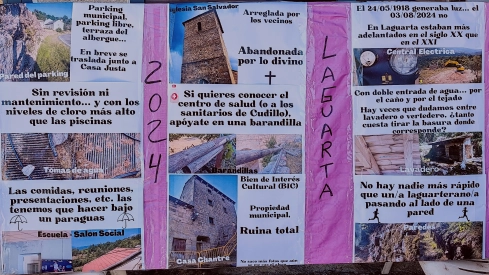 Parking
municipal,
parking libre,
terraza del
albergue...
En breve se
traslada junto a
Casa Justa
Pared del parking
Sin revisión ni
mantenimiento... y con los
niveles de cloro más alto
que las piscinas
Tomas de agua
Las comidas, reuniones,
presentaciones, etc. las
tenemos que hacer bajo
un paraguas
Escuela - Salon Social
2024
Iglesia San Salvador
Arreglada por
los vecinos
Abandonada
por lo divino
Si quieres conocer el
centro de salud (o a los
sanitarios de Cudillo),
apóyate en una barandilla
Barandillas
Bien de Interés
Cultural (BIC)
Propiedad
municipal.
Ruina total
Casa Chantre
LAGUARTA
El 24/05/1918 generaba luz... el
03/08/2024 no
En Laguarta estaban más
adelantados en el siglo XX que
en el XXI
Central Electrica
Con doble entrada de agua... por
el caño y por el tejado
Hay veces que dudamos entre
lavadero o vertedero, ¿tanto
cuesta tirar la basura donde
corresponde?
Lavadero
No hay nadie más rápido
que un/a laguarterano/a
pasando al lado de una
pared
Paredes